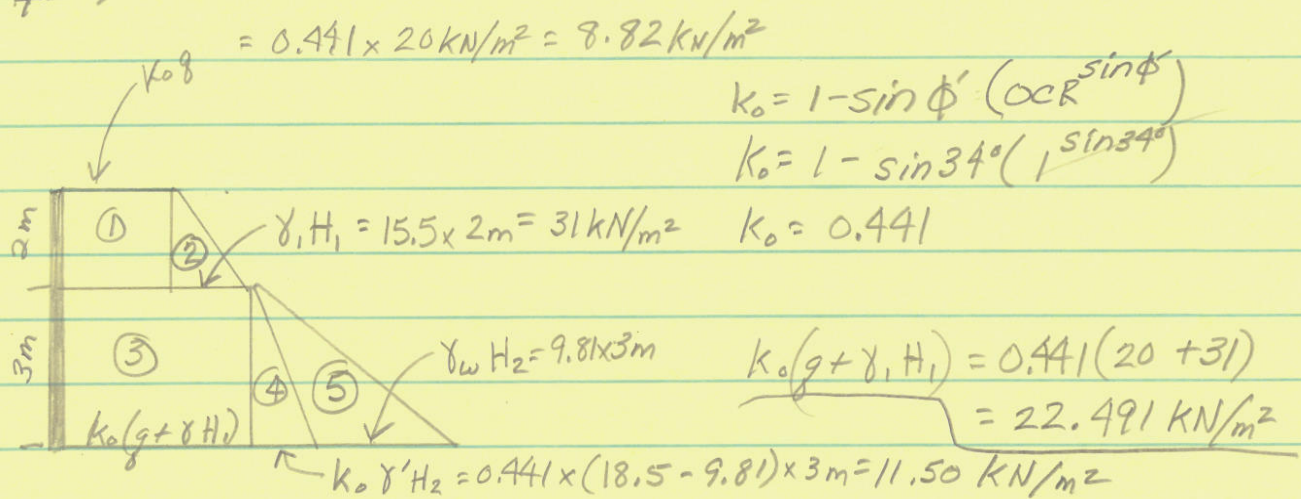 = 0.441 x 20 kN/m² = 8.82 kN/m²
k₀q
k₀ = 1 - sin ϕ' (OCR^sin ϕ')
k₀ = 1 - sin 34° (1^sin 34°)
2m
①
②
γ₁H₁ = 15.5 x 2m = 31 kN/m²
k₀ = 0.441
3m
③
④
⑤
γw H₂ = 9.81x3m
k₀(q + γ₁H₁) = 0.441 (20 + 31)
= 22.491 kN/m²
k₀(q + γ H₁)
k₀ γ' H₂ = 0.441 x (18.5 - 9.81) x 3m = 11.50 KN/m²